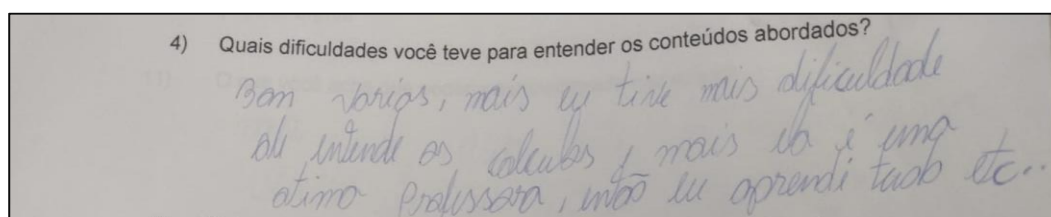 4) Quais dificuldades você teve para entender os conteúdos abordados?
Bom varios, mais eu tive mais dificuldade
de intende os calculos, mais ela é uma
otima professora, intão eu aprendi tudo etc..